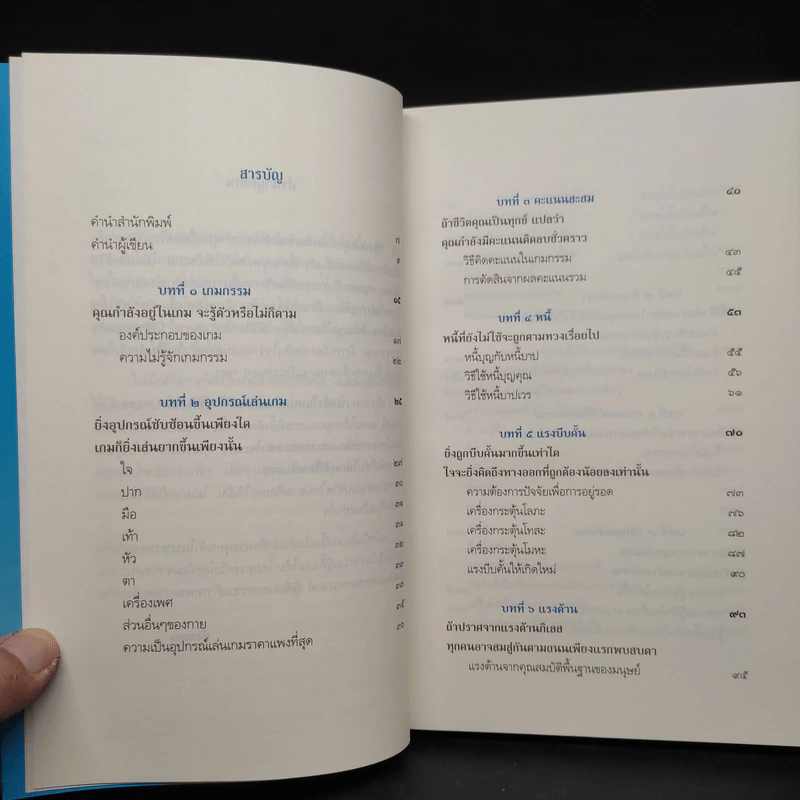 สารบัญ
คำนำสำนักพิมพ์ ๗
คำนำผู้เขียน ๑
บทที่ ๑ เกมกรรม ๑๕
คุณกำลังอยู่ในเกม จะรู้ตัวหรือไม่ก็ตาม
องค์ประกอบของเกม ๑๗
ความไม่รู้จักเกมกรรม ๒๒
บทที่ ๒ อุปกรณ์เล่นเกม ๒๕
ยิ่งอุปกรณ์ซับซ้อนขึ้นเพียงใด
เกมก็ยิ่งเล่นยากขึ้นเพียงนั้น
ใจ ๒๗
ปาก ๓๐
มือ ๓๑
เท้า ๓๑
หัว ๓๒
ตา ๓๓
เครื่องเพศ ๓๓
ส่วนอื่นๆของกาย ๓๕
ความเป็นอุปกรณ์เล่นเกมราคาแพงที่สุด ๓๖
บทที่ ๓ คะแนนสะสม ๔๐
ถ้าชีวิตคุณเป็นทุกข์ แปลว่า
คุณกำลังมีคะแนนติดลบชั่วคราว
วิธีคิดคะแนนในเกมกรรม ๔๓
การตัดสินจากผลคะแนนรวม ๔๕
บทที่ ๔ หนี้ ๕๓
หนี้ที่ยังไม่ใช้จะถูกตามทวงเรื่อยไป
หนี้บุญกับหนี้บาป ๕๕
วิธีใช้หนี้บุญคุณ ๕๖
วิธีใช้หนี้บาปเวร ๖๑
บทที่ ๕ แรงบีบคั้น ๗๐
ยิ่งถูกบีบคั้นมากขึ้นเท่าใด
ใจจะยิ่งคิดถึงทางออกที่ถูกต้องน้อยลงเท่านั้น
ความต้องการปัจจัยเพื่อการอยู่รอด ๗๓
เครื่องกระตุ้นโลภะ ๗๖
เครื่องกระตุ้นโทสะ ๘๒
เครื่องกระตุ้นโมหะ ๘๗
แรงบีบคั้นให้เกิดใหม่ ๙๐
บทที่ ๖ แรงต้าน ๙๓
ถ้าปราศจากแรงต้านกิเลส
ทุกคนอาจสมสู่กันตามถนนเพียงแรกพบสบตา
แรงต้านจากคุณสมบัติพื้นฐานของมนุษย์ ๙๕